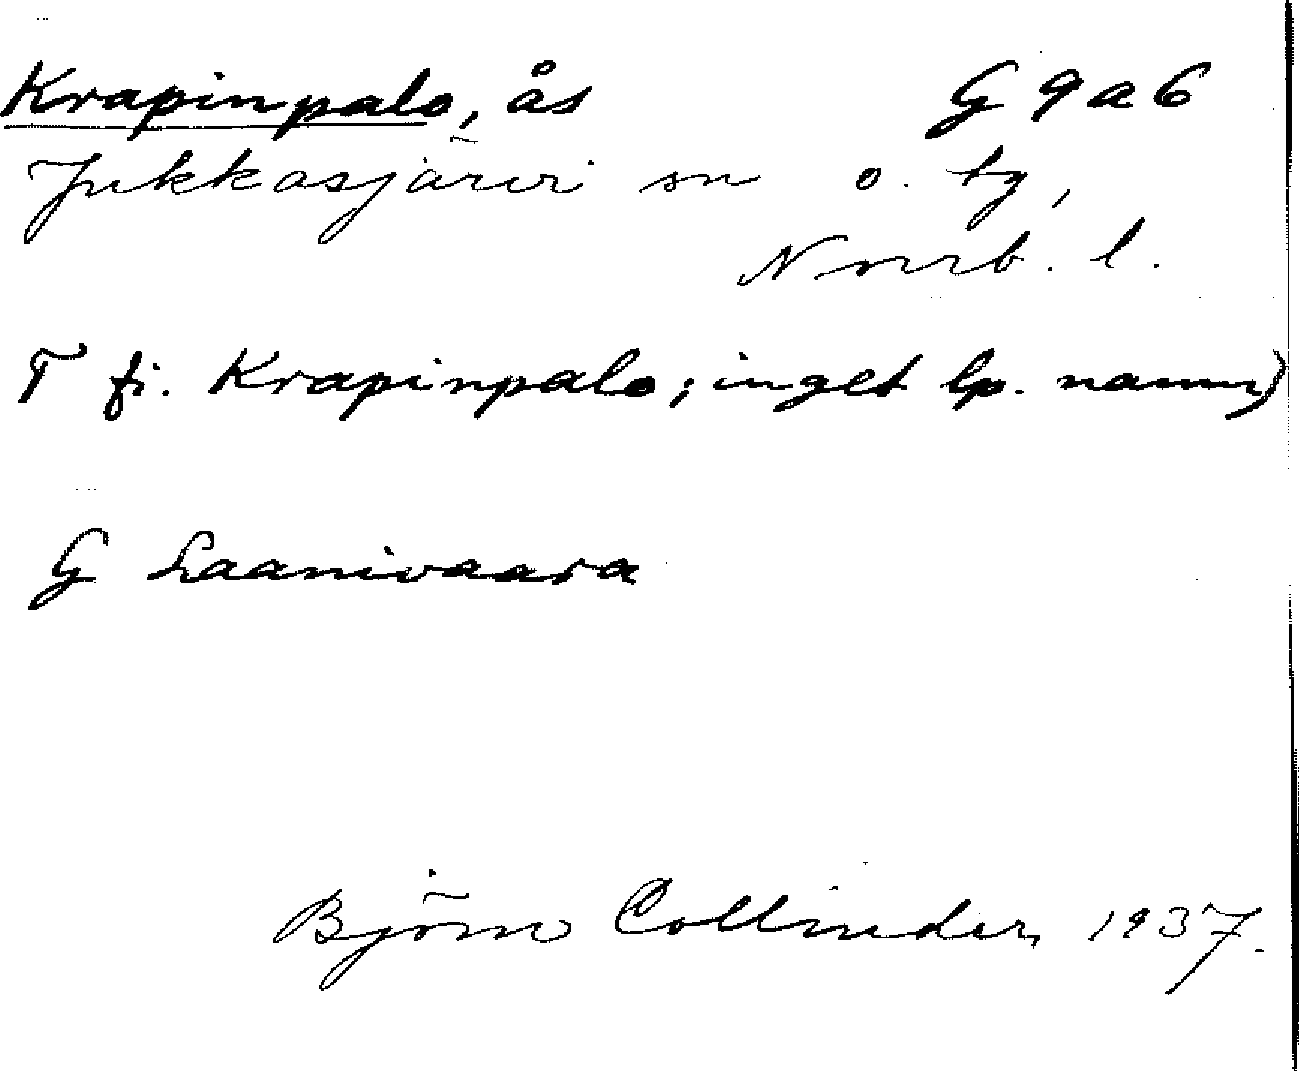 Krapinpalo, ås G 9 a 6
Jukkasjärvi sn o. tg,
Norrb. l.
T fi. Krapinpalo; inget lp. namn)
G Laanivaara
Björn Collinder, 1937.